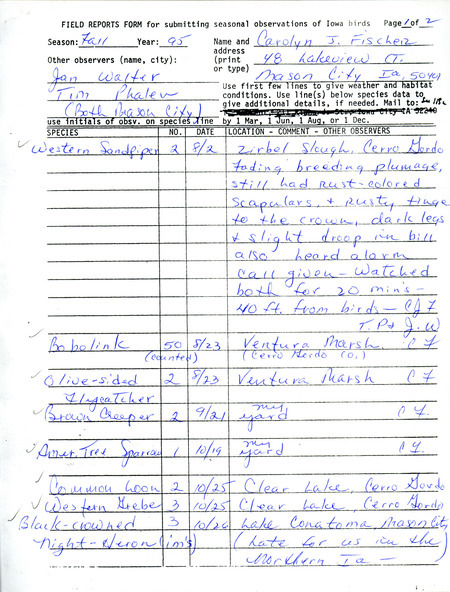 FIELD REPORTS FORM for submitting seasonal observations of Iowa birds Page 1 of 2
Season: Fall Year: 95 Name and Carolyn J. Fischer
address 48 Lakeview Ct.
Other observers (name, city): (print
or type) Mason City Ia, 50401
Jan Walter
Tim Phalen
(Both Mason City)
Use first few lines to give weather and habitat
conditions. Use line(s) below species data to
give additional details, if needed. Mail to:
use initials of obsv. on species line by 1 Mar, 1 Jun, 1 Aug, or 1 Dec.
SPECIES NO. DATE LOCATION - COMMENT - OTHER OBSERVERS
Western Sandpiper 2 8/2 Zirbel Slough, Cerro Gordo
fading breeding plumage,
still had rust-colored
scapulars, & rusty tinge
to the crown, dark legs
& slight droop in bill
also heard alarm
call given - Watched
both for 20 min's -
40 ft. from birds - CJF
T.P & J.W
Bobolink 50 8/23 Ventura Marsh CF
(counted) (Cerro Gordo Co.)
Olive-sided 2 8/23 Ventura Marsh CF
Flycatcher
Brown Creeper 2 9/21 my yard CF.
Amer. Tree Sparrow 1 10/19 my yard CF.
Common Loon 2 10/25 Clear Lake, Cerro Gordo
Western Grebe 3 10/25 Clear Lake Cerro Gordo
Black-crowned 3 10/26 Lake Conatoma, Mason City
Night-Heron (im's) (Late for us in the
Northern Ia -